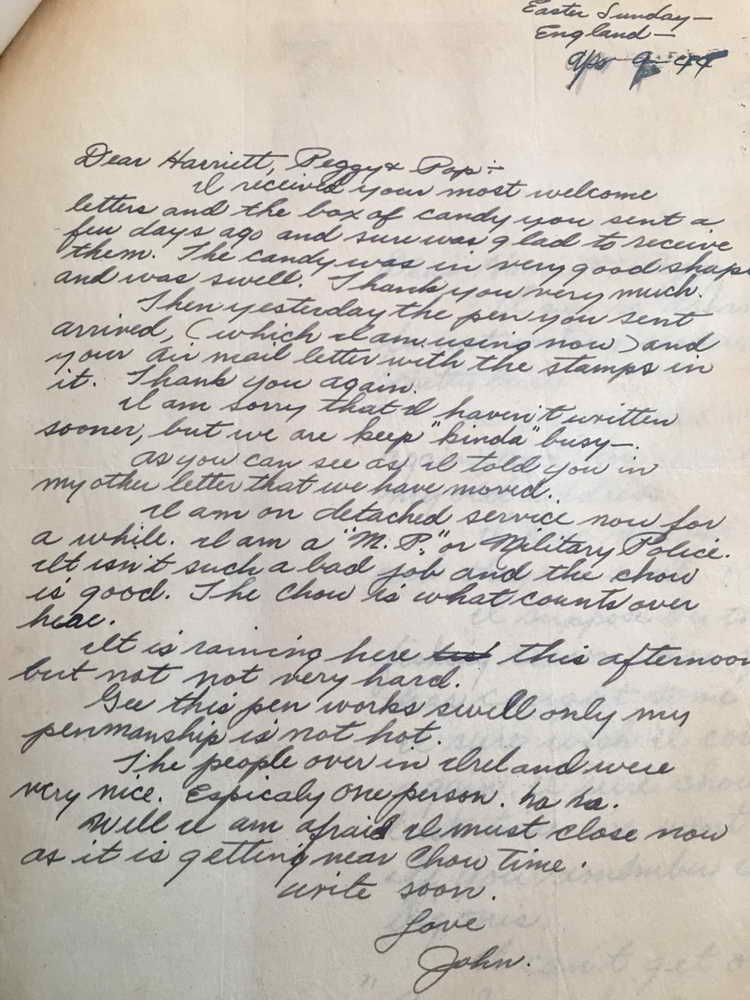 Easter Sunday—
England—
Apr 9 44
Dear Harriett, Peggy & Pop:—
I received your most welcome
letters and the box of candy you sent a
few days ago and sure was glad to receive
them. The candy was in very good shape
and was swell. Thank you very much.
Then yesterday the pen you sent
arrived, (which I am using now) and
your air mail letter with the stamps in
it. Thank you again.
I am sorry that I haven't written
sooner, but we are keep "kinda" busy—.
As you can see as I told you in
my other letter that we have moved.
I am on detached service now for
a while. I am a "M.P." or Military Police.
It isn't such a bad job and the chow
is good. The chow is what counts over
here.
It is raining here this afternoon
but not not very hard.
Gee this pen works swell only my
penmanship is not hot.
The people over in Ireland were
very nice. Espicaly one person. ha ha.
Well I am afraid I must close now
as it is getting near Chow Time.
Write soon.
Love
John.